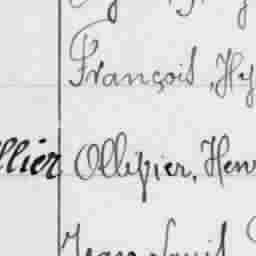 François, Hy
llier Ollivier, Henr
Jean Louis